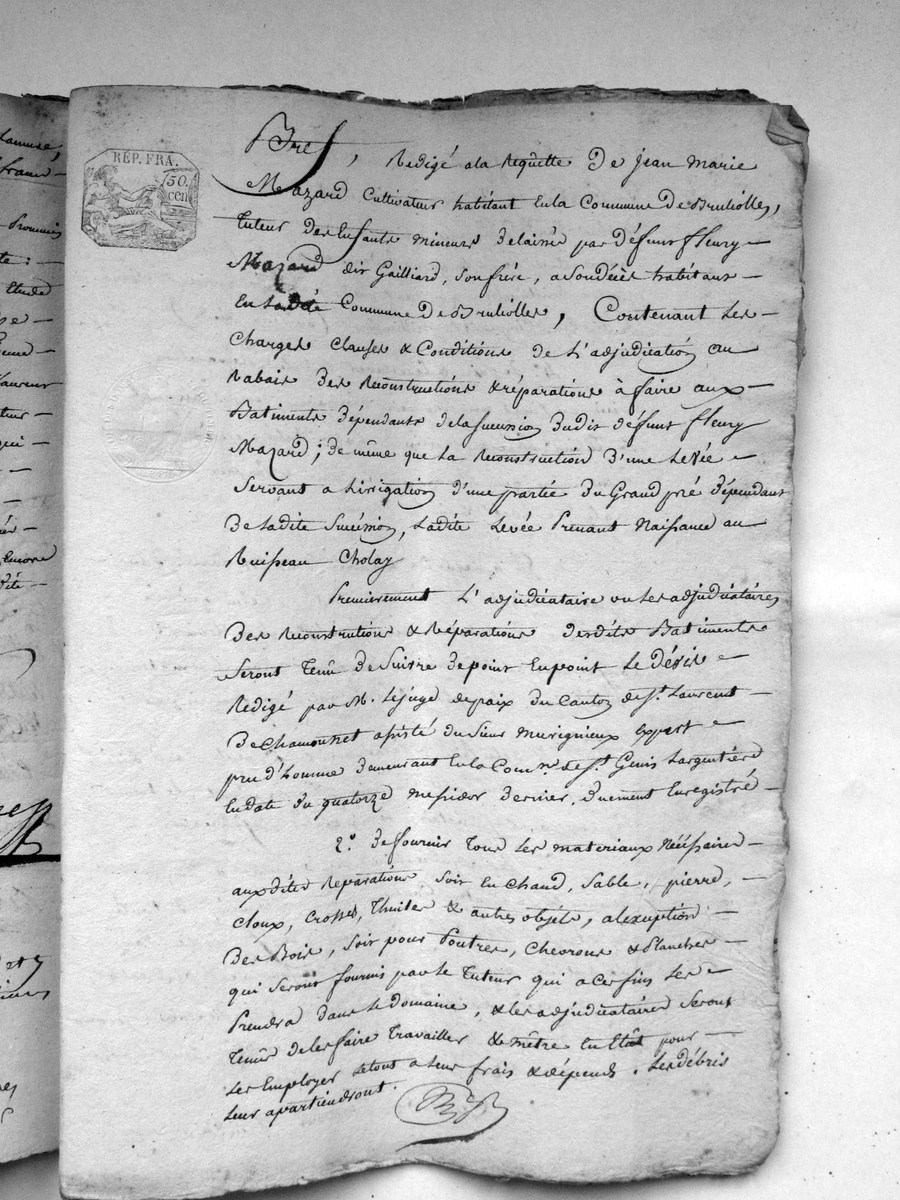 RÉP. FRA.
50
cen
Bref, Redigé a la Requette De jean marie
Mazard Cultivateur habitant En la Commune De Brulliolles,
Tuteur Des Enfants mineurs Delaissés par Défunt fleury
Mazard dit Gailliard, son frère, a son décès habitant
En Ladite Commune De Brulliolles, Contenant Les
Charges Clauses & Conditions De L'adjudication au
Rabais Des Reconstructions & réparations à faire aux
Batiments Dépendants de la succession Dudit Défunt fleury
Mazard; De même que La Reconstruction D'une Levée
Servant a L'irrigation D'une partie Du Grand pré Dépendant
De Ladite Succession, Ladite Levée Prenant Naissance au
Ruisseau Cholay
Premierement L'adjudicataire ou Les adjudicataires
Des Reconstrutions & Réparations Desdits Batiments
Seront Tenû De Suivre De point En point Le Dévis
Redigé par M. Le juge de paix Du Canton de St. Laurent
De Chamousset assisté du Sieur murigneux Expert
prud'homme Demeurant En la Comn.e de St. Genis Largentière
En date du quatorze Messidor Dernier. Duement Enregistré
2.o De fournir Tous Les materiaux Nécéssaires
auxdites Reparations soit En Chaud, Sable, pierre,
Cloux, Crosses, Thuiles & autres objéts, a l'exception
Des Bois, soit pour Poutres, Chevrons & Planches
qui Seront fournis par Le Tuteur qui a Ces fins Les
Prendra dans Le Domaine, & les adjudicataires Seront
Tenûs de les faire Travailler & mêtre En Etat pour
Les Employer Le tout a Leur frais & dépends. Les débris
Leur apartiendront.